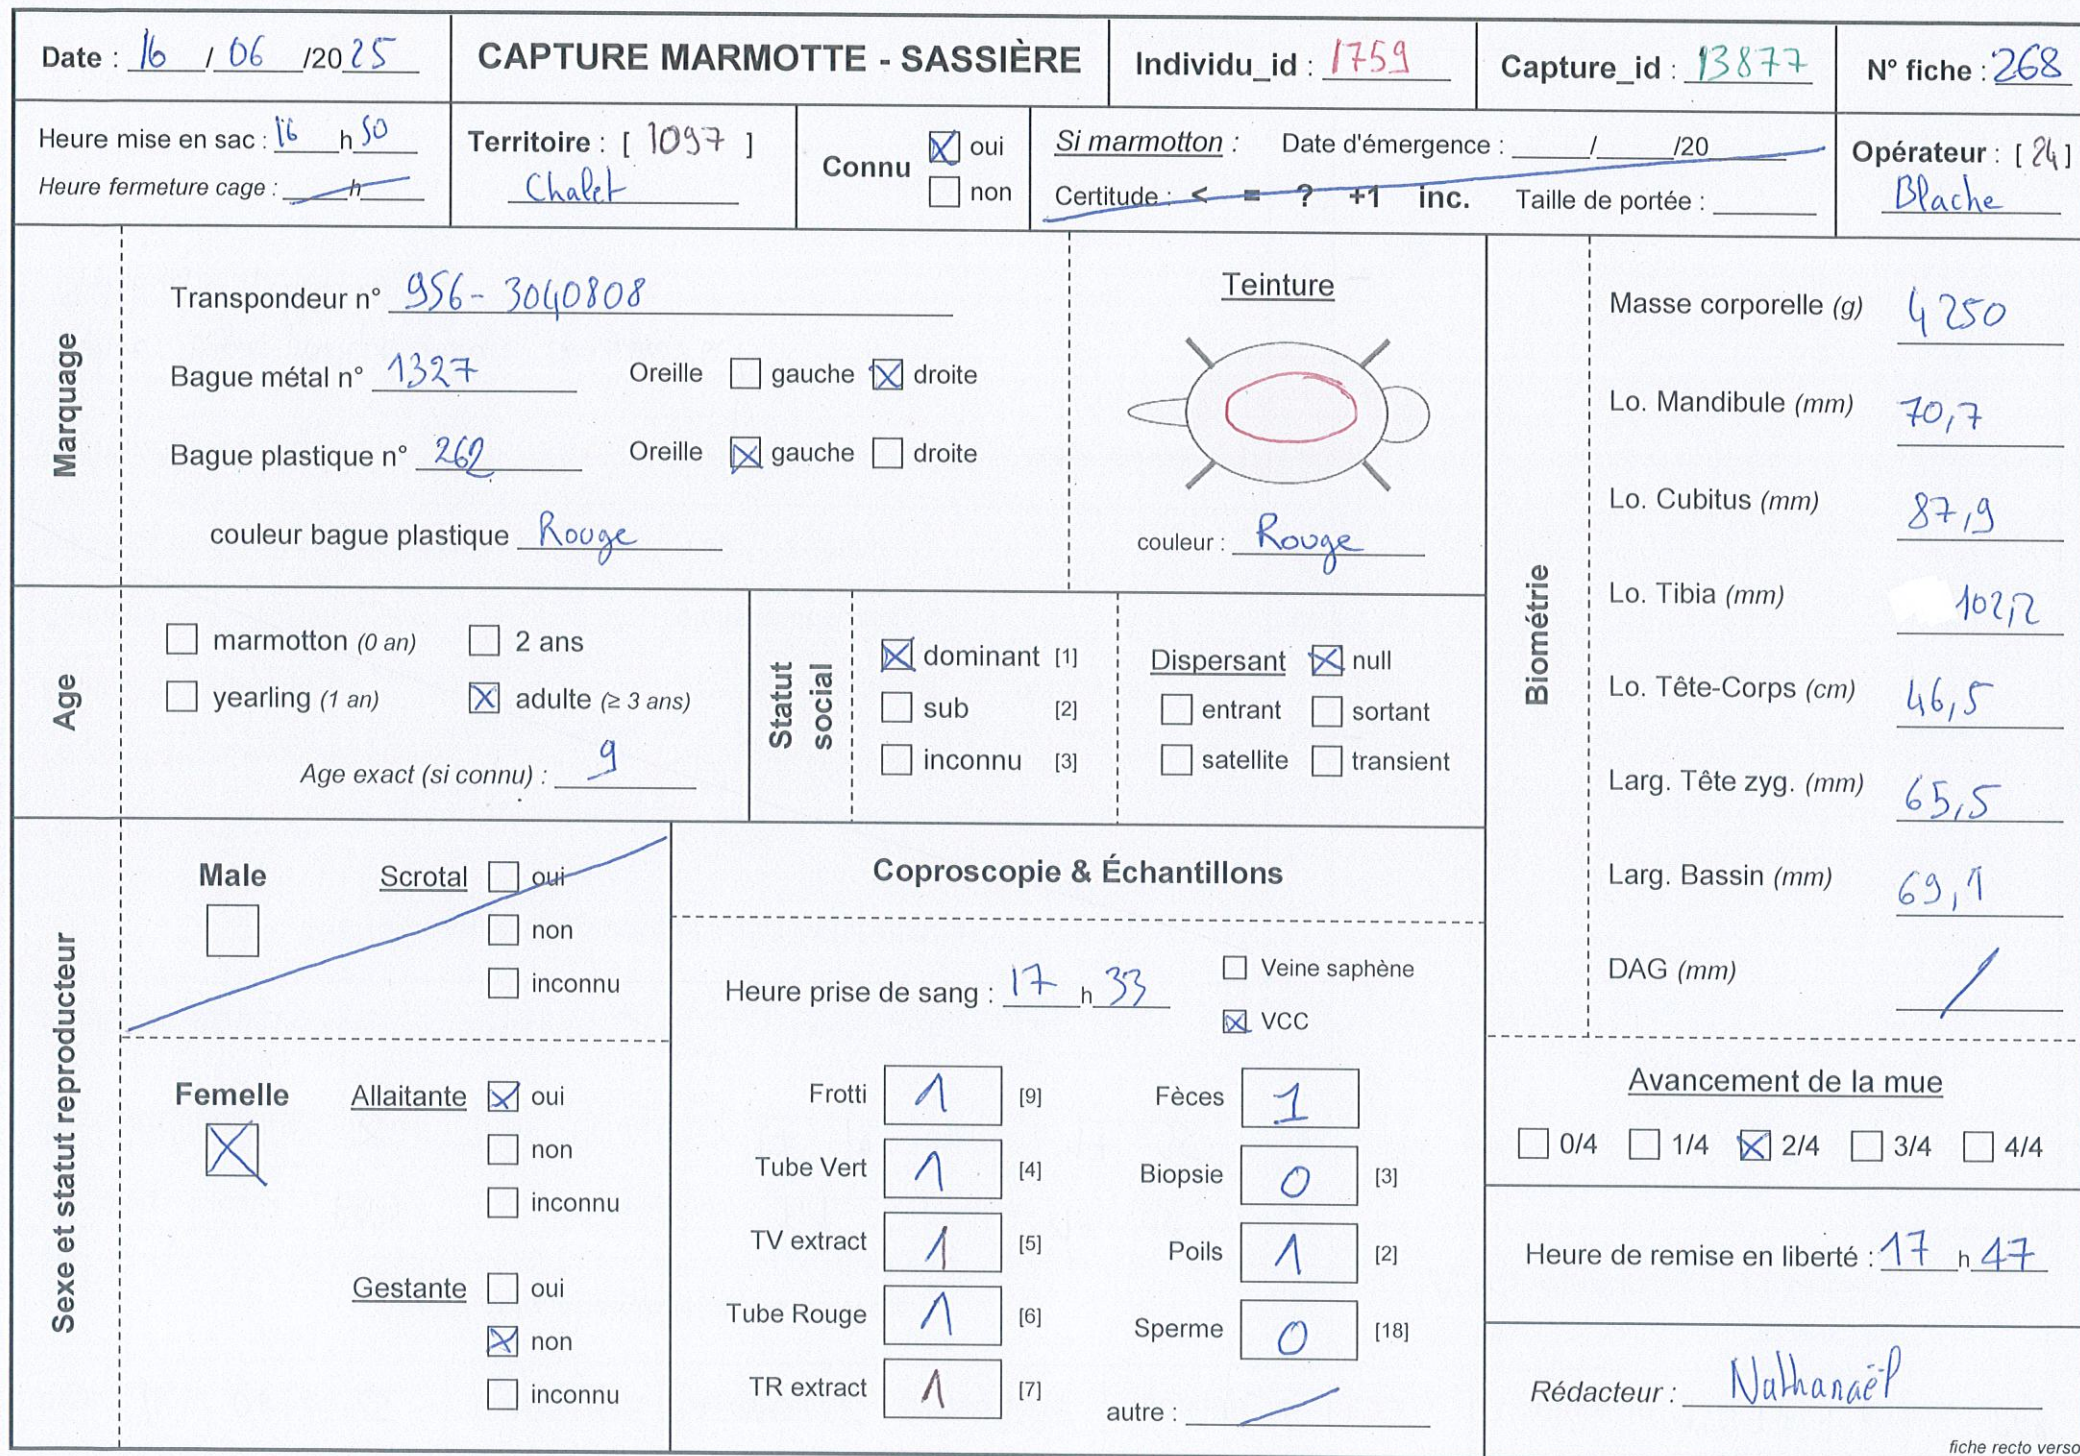 Date : 16 / 06 /2025
CAPTURE MARMOTTE - SASSIÈRE
Individu_id : 1759
Capture_id : 13877
N° fiche : 268
Heure mise en sac : 16 h 50
Heure fermeture cage : h
Territoire : [ 1097 ]
Chalet
Connu
oui
non
Si marmotton : Date d'émergence : / /20
Certitude : < = ? +1 inc. Taille de portée :
Opérateur : [ 24 ]
Blache
Marquage
Transpondeur n° 956 - 3040808
Bague métal n° 1327 Oreille gauche droite
Bague plastique n° 262 Oreille gauche droite
couleur bague plastique Rouge
Teinture
couleur : Rouge
Age
marmotton (0 an) 2 ans
yearling (1 an) adulte (≥ 3 ans)
Age exact (si connu) : 9
Statut social
dominant [1]
sub [2]
inconnu [3]
Dispersant null
entrant sortant
satellite transient
Biométrie
Masse corporelle (g) 4250
Lo. Mandibule (mm) 70,7
Lo. Cubitus (mm) 87,9
Lo. Tibia (mm) 102,2
Lo. Tête-Corps (cm) 46,5
Larg. Tête zyg. (mm) 65,5
Larg. Bassin (mm) 69,1
DAG (mm) /
Sexe et statut reproducteur
Male Scrotal oui
non
inconnu
Femelle Allaitante oui
non
inconnu
Gestante oui
non
inconnu
Coproscopie & Échantillons
Heure prise de sang : 17 h 33
Veine saphène
VCC
Frotti 1 [9] Fèces 1
Tube Vert 1 [4] Biopsie 0 [3]
TV extract 1 [5] Poils 1 [2]
Tube Rouge 1 [6] Sperme 0 [18]
TR extract 1 [7] autre : /
Avancement de la mue
0/4 1/4 2/4 3/4 4/4
Heure de remise en liberté : 17 h 47
Rédacteur : Nathanaël
fiche recto verso